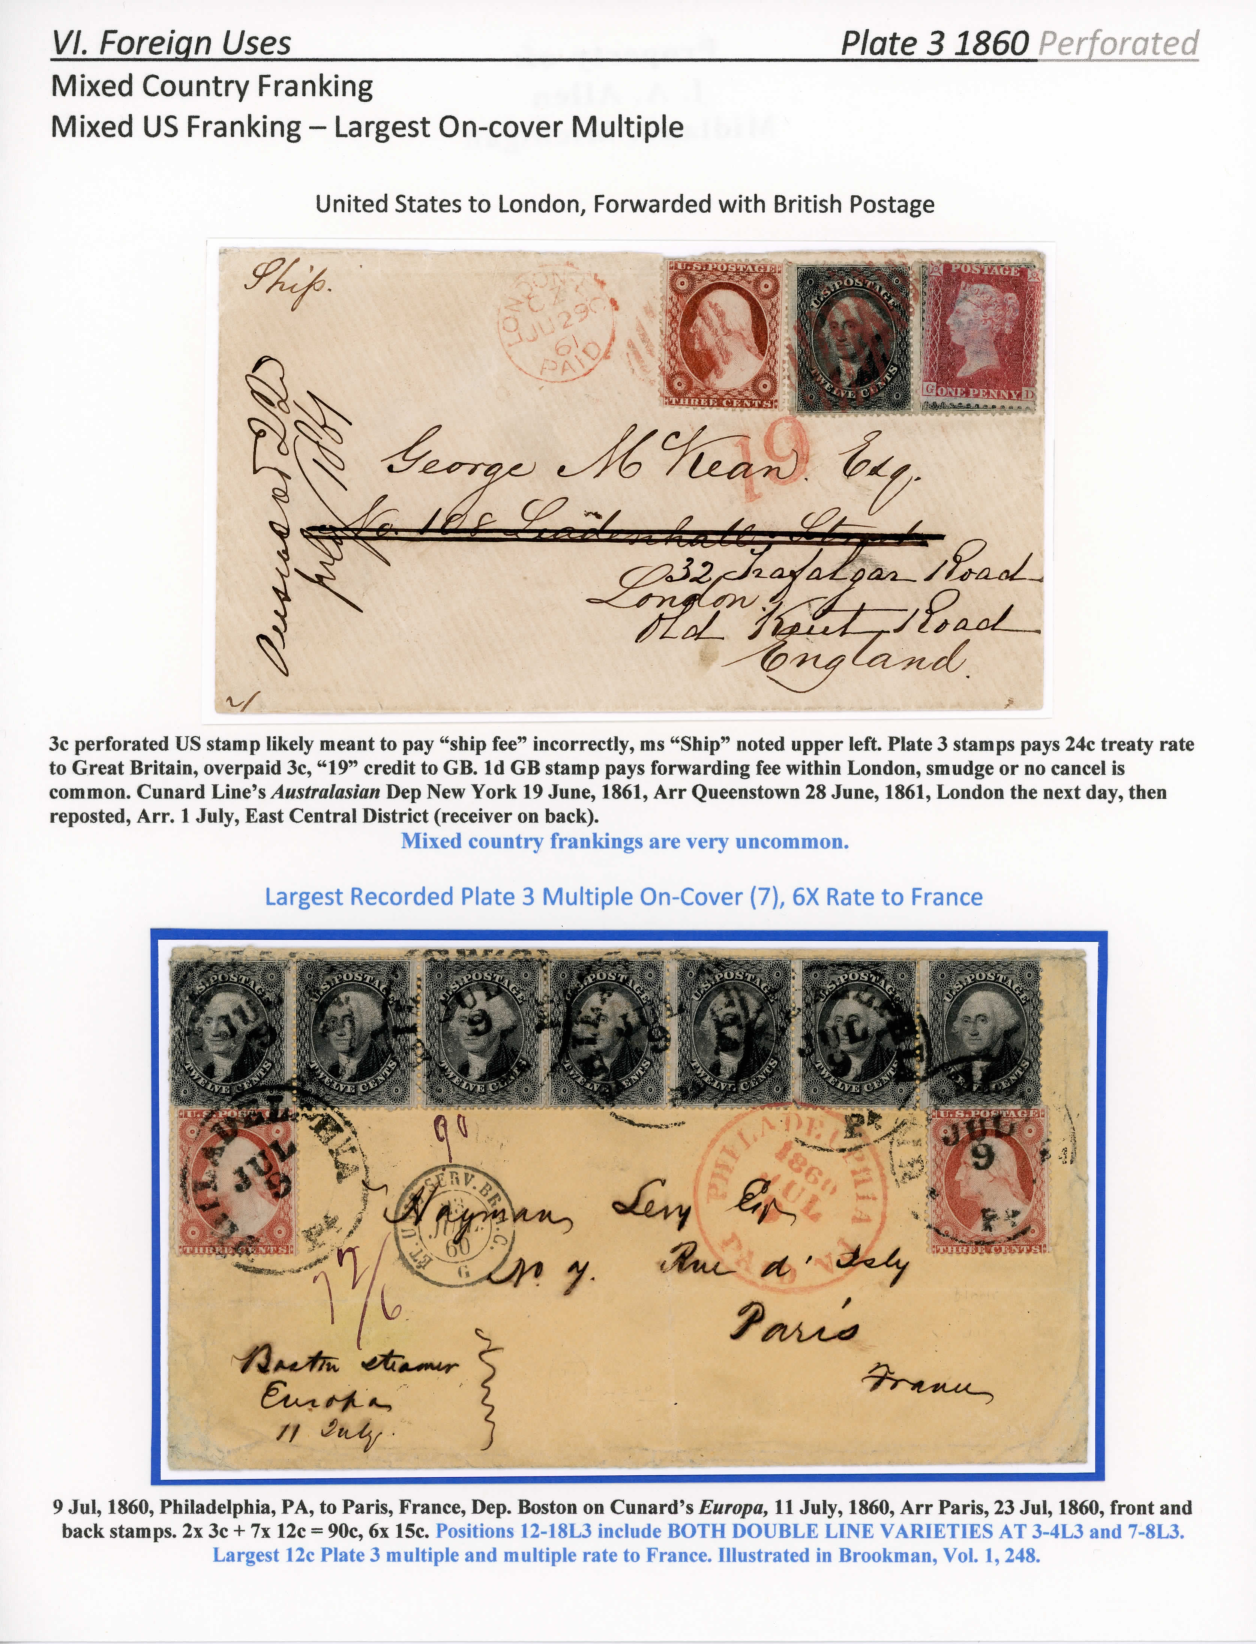 VI. Foreign Uses Plate 3 1860 Perforated
Mixed Country Franking
Mixed US Franking – Largest On-cover Multiple
United States to London, Forwarded with British Postage
Ship.
LONDON
JU 29
61
PAID
U.S. POSTAGE
THREE CENTS
U.S. POSTAGE
TWELVE CENTS
POSTAGE
G ONE PENNY D
19
George McKean. Esq.
No. 108 Leadenhall Street
32 Trafalgar Road
London
Old Kent Road
England.
1861
3c perforated US stamp likely meant to pay “ship fee” incorrectly, ms “Ship” noted upper left. Plate 3 stamps pays 24c treaty rate
to Great Britain, overpaid 3c, “19” credit to GB. 1d GB stamp pays forwarding fee within London, smudge or no cancel is
common. Cunard Line’s Australasian Dep New York 19 June, 1861, Arr Queenstown 28 June, 1861, London the next day, then
reposted, Arr. 1 July, East Central District (receiver on back).
Mixed country frankings are very uncommon.
Largest Recorded Plate 3 Multiple On-Cover (7), 6X Rate to France
U.S. POSTAGE U.S. POSTAGE U.S. POSTAGE U.S. POSTAGE U.S. POSTAGE U.S. POSTAGE U.S. POSTAGE
TWELVE CENTS TWELVE CENTS TWELVE CENTS TWELVE CENTS TWELVE CENTS TWELVE CENTS TWELVE CENTS
U.S. POSTAGE
THREE CENTS
PHILADELPHIA
JUL
9
Pa
90
PHILADELPHIA
1860
JUL
PAID
U.S. POSTAGE
JUL
9
Pa
THREE CENTS
ET. UNIS SERV. BR. A. C.
60
G
Hayman Levy Esq
No 7. Rue d' Isly
Paris
France
Boston steamer
Europa
11 July.
9 Jul, 1860, Philadelphia, PA, to Paris, France, Dep. Boston on Cunard’s Europa, 11 July, 1860, Arr Paris, 23 Jul, 1860, front and
back stamps. 2x 3c + 7x 12c = 90c, 6x 15c. Positions 12-18L3 include BOTH DOUBLE LINE VARIETIES AT 3-4L3 and 7-8L3.
Largest 12c Plate 3 multiple and multiple rate to France. Illustrated in Brookman, Vol. 1, 248.